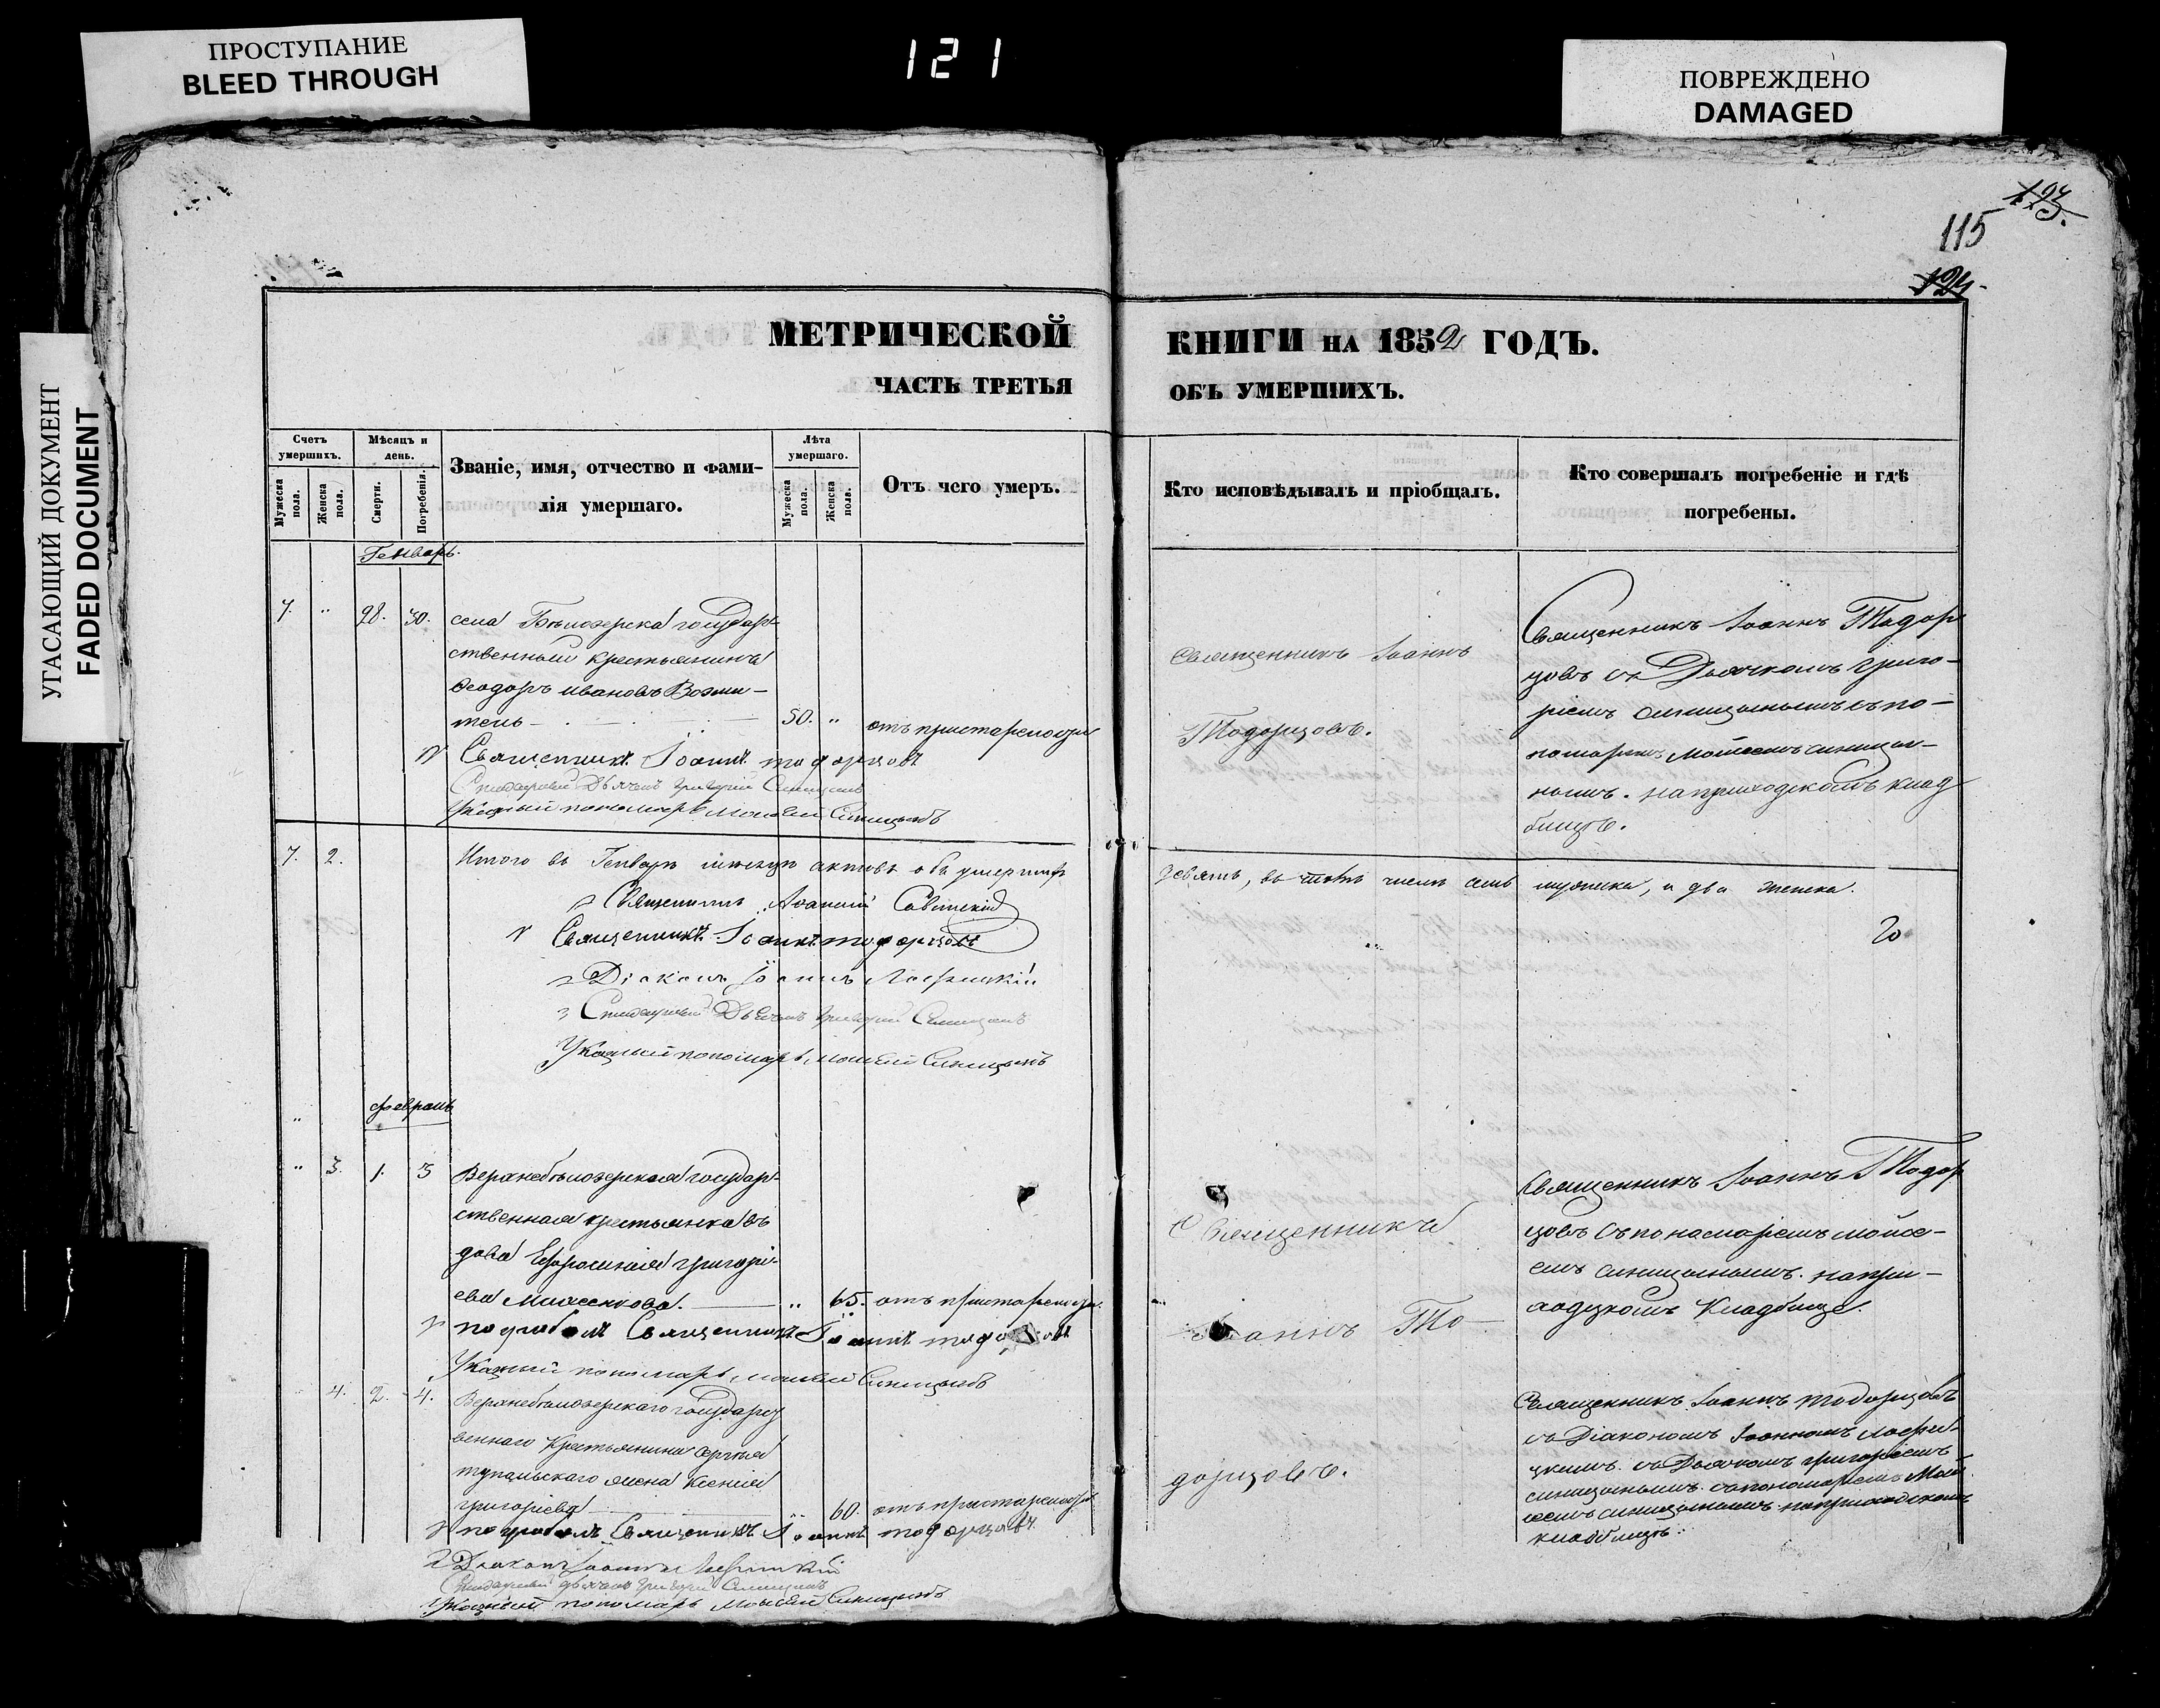 ПРОСТУПАНИЕ
BLEED THROUGH
121
ПОВРЕЖДЕНО
DAMAGED
УГАСАЮЩИЙ ДОКУМЕНТ
FADED DOCUMENT
115
МЕТРИЧЕСКОЙ КНИГИ НА 1852 ГОДЪ.
ЧАСТЬ ТРЕТЬЯ ОБЪ УМЕРШИХЪ.
Счетъ умершихъ.
Мужеска пола.
Женска пола.
Мѣсяцъ и день.
Смерти.
Погребенія.
Званіе, имя, отчество и фами-
лія умершаго.
Лѣта умершаго.
Мужеска пола.
Женска пола.
Отъ чего умеръ.
Кто исповѣдывалъ и пріобщалъ.
Кто совершалъ погребеніе и гдѣ
погребены.
Генварь.
7. " 28. 30. села Бѣлозерска государ-
ственный крестьянинъ
Феодоръ Ивановъ
тель 50. " отъ
Священникъ Іоаннъ
Тодорцовъ.
Священникъ Іоаннъ Тодор
цовъ съ Дьячкомъ Григо-
ріемъ Синицынымъ съ по-
номаремъ Мойсеемъ Синицы-
нымъ. на приходскомъ клад
бищѣ.
Священникъ Іоаннъ Тодорцовъ
Дьячекъ Григорій Синицынъ
Указный пономарь Моисей Синицынъ
7. 2. Итого въ Генварѣ мѣсяцѣ актовъ объ умершихъ
девять, въ томъ числѣ семь мужска, и два женска.
Священникъ
Священникъ Іоаннъ Тодорцовъ
Діаконъ Іоаннъ
Дьячекъ Григорій Синицынъ
Указный пономарь Моисей Синицынъ
Февраль
" 3. 1. 3 Верхнебѣлозерская государ-
ственная крестьянка въ
дова Ефросинія Григорі-
ева " 65. отъ
Священникъ
Іоаннъ То-
дорцовъ.
Священникъ Іоаннъ Тодор
цовъ съ пономаремъ Мойсе-
емъ Синицынымъ. на при-
ходскомъ кладбище.
Священникъ Іоаннъ
Указный пономарь Моисей Синицынъ
4. 2. 4. Верхнебѣлозерскаго государст
веннаго крестьянина Сергѣя
жена Ксенія
Григорієва 60. отъ
Священникъ Іоаннъ Тодорцовъ
съ Діакономъ Іоанномъ
съ Дьячкомъ Григоріемъ
Синицынымъ. съ пономаремъ Мой
сеемъ Синицынымъ на приходскомъ
кладбищѣ.
Священникъ Іоаннъ Тодорцовъ
Діаконъ Іоаннъ
Дьячекъ Григорій Синицынъ
Указный пономарь Моисей Синицынъ